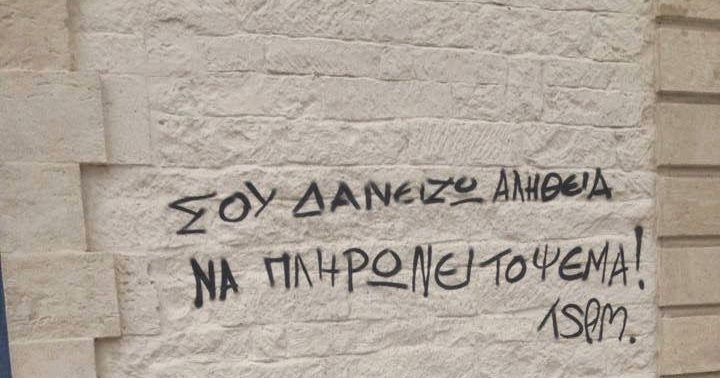 ΣΟΥ ΔΑΝΕΙΖΩ ΑΛΗΘΕΙΑ
ΝΑ ΠΛΗΡΩΝΕΙ ΤΟ ΨΕΜΑ!